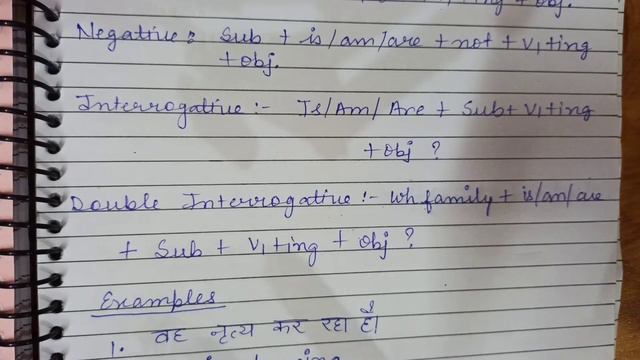 + obj.
Negative :- Sub + is/am/are + not + V1 + ing
+ obj.
Interrogative :- Is/Am/Are + Sub + V1 + ing
+ obj ?
Double Interrogative :- Wh family + is/am/are
+ Sub + V1 + ing + obj ?
Examples
1. वह नृत्य कर रहा है।